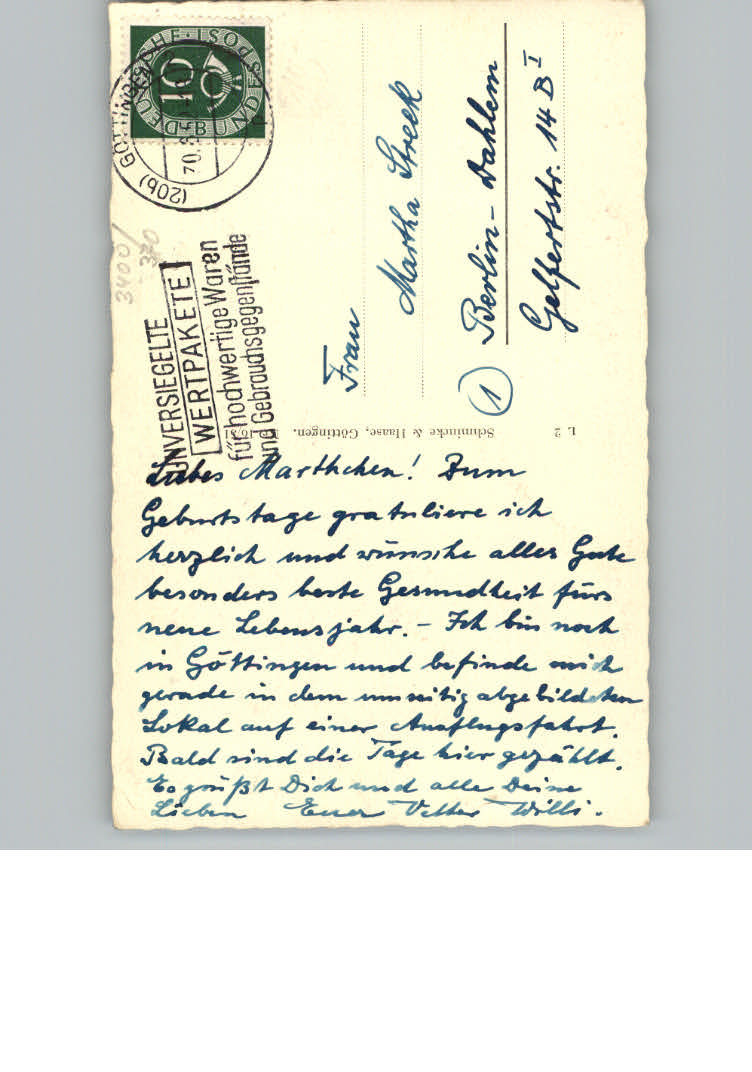 DEUTSCHE BUNDESPOST
10
(20b) GÖTTINGEN
3400/
370
UNVERSIEGELTE
WERTPAKETE
für hochwertige Waren
und Gebrauchsgegenstände
Frau
Martha Streek
(1) Berlin-Dahlem
Gelfertstr. 14 B I
L 2
Schmincke & Haase, Göttingen.
Liebes Marthchen! Zum
Geburtstage gratuliere ich
herzlich und wünsche alles Gute
besonders beste Gesundheit fürs
neue Lebensjahr. – Ich bin noch
in Göttingen und befinde mich
gerade in dem umseitig abgebildeten
Lokal auf einer Ausflugsfahrt.
Bald sind die Tage hier gezählt.
Es grüßt Dich und alle Deine
Lieben Euer Vetter Willi.